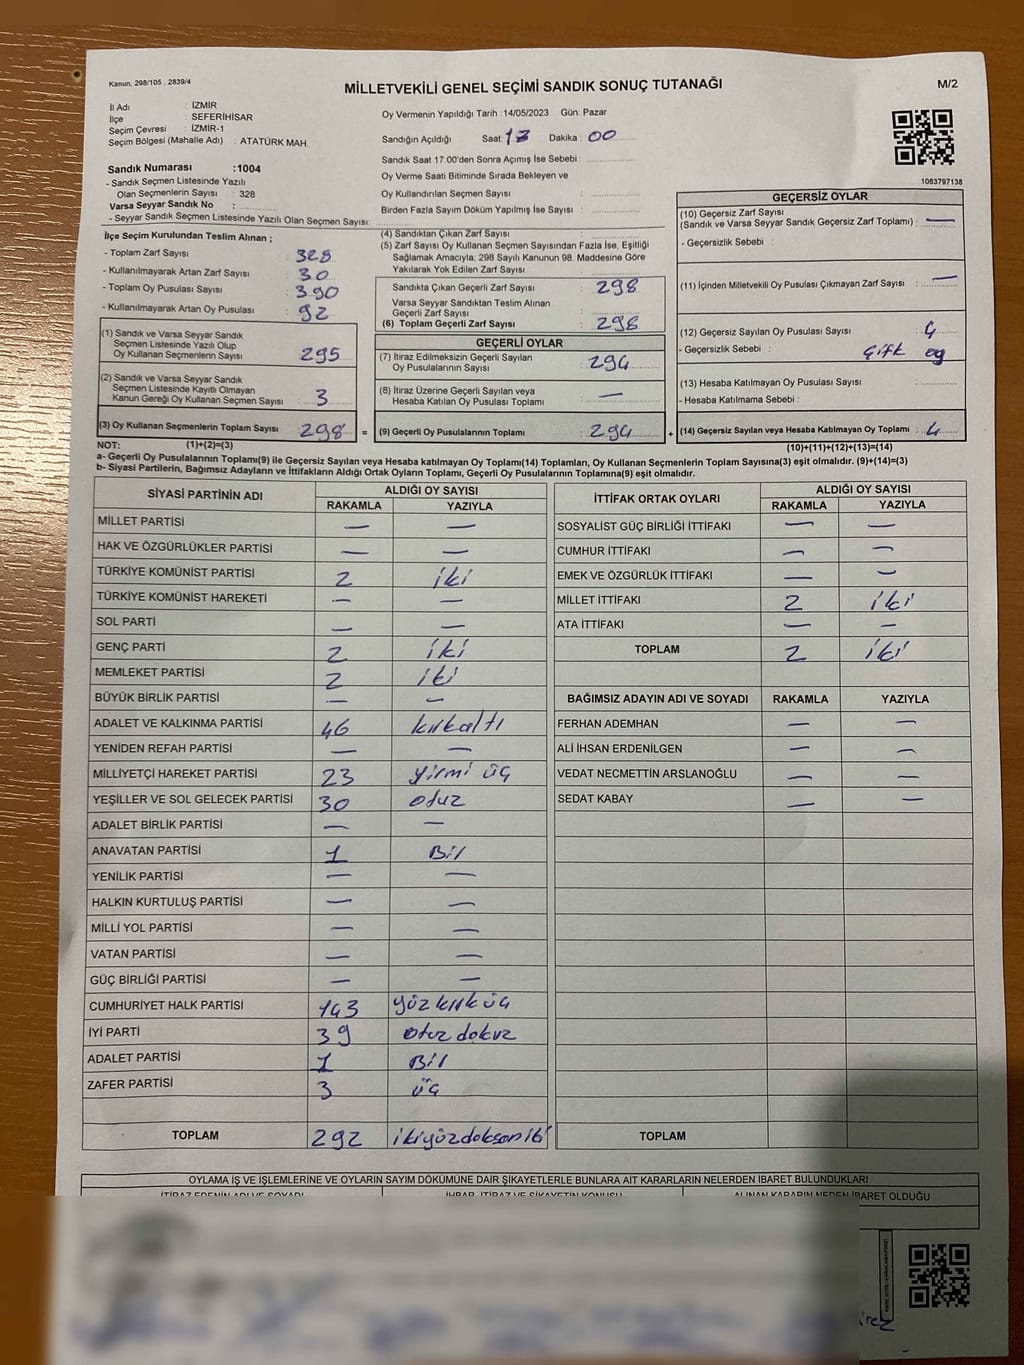 Kanun, 298/105 , 2839/4
MİLLETVEKİLİ GENEL SEÇİMİ SANDIK SONUÇ TUTANAĞI
M/2
İl Adı : İZMİR
İlçe : SEFERİHİSAR
Seçim Çevresi : İZMİR-1
Seçim Bölgesi (Mahalle Adı) : ATATÜRK MAH.
Sandık Numarası :1004
- Sandık Seçmen Listesinde Yazılı
Olan Seçmenlerin Sayısı : 328
Varsa Seyyar Sandık No :
- Seyyar Sandık Seçmen Listesinde Yazılı Olan Seçmen Sayısı:
Oy Vermenin Yapıldığı Tarih :14/05/2023 Gün: Pazar
Sandığın Açıldığı Saat: 17 Dakika: 00
Sandık Saat 17:00'den Sonra Açımış İse Sebebi :
Oy Verme Saati Bitiminde Sırada Bekleyen ve
Oy Kullandırılan Seçmen Sayısı :
Birden Fazla Sayım Döküm Yapılmış İse Sayısı :
1083797138
İlçe Seçim Kurulundan Teslim Alınan ;
- Toplam Zarf Sayısı : 328
- Kullanılmayarak Artan Zarf Sayısı : 30
- Toplam Oy Pusulası Sayısı : 390
- Kullanılmayarak Artan Oy Pusulası : 92
(1) Sandık ve Varsa Seyyar Sandık
Seçmen Listesinde Yazılı Olup
Oy Kullanan Seçmenlerin Sayısı : 295
(2) Sandık ve Varsa Seyyar Sandık
Seçmen Listesinde Kayıtlı Olmayan
Kanun Gereği Oy Kullanan Seçmen Sayısı : 3
(3) Oy Kullanan Seçmenlerin Toplam Sayısı : 298 =
(4) Sandıktan Çıkan Zarf Sayısı :
(5) Zarf Sayısı Oy Kullanan Seçmen Sayısından Fazla İse, Eşitliği
Sağlamak Amacıyla; 298 Sayılı Kanunun 98. Maddesine Göre
Yakılarak Yok Edilen Zarf Sayısı :
Sandıkta Çıkan Geçerli Zarf Sayısı : 298
Varsa Seyyar Sandıktan Teslim Alınan
Geçerli Zarf Sayısı :
(6) Toplam Geçerli Zarf Sayısı : 298
GEÇERLİ OYLAR
(7) İtiraz Edilmeksizin Geçerli Sayılan
Oy Pusulalarının Sayısı : 294
(8) İtiraz Üzerine Geçerli Sayılan veya
Hesaba Katılan Oy Pusulası Toplamı : —
(9) Geçerli Oy Pusulalarının Toplamı : 294 +
GEÇERSİZ OYLAR
(10) Geçersiz Zarf Sayısı
(Sandık ve Varsa Seyyar Sandık Geçersiz Zarf Toplamı) : —
- Geçersizlik Sebebi :
(11) İçinden Milletvekili Oy Pusulası Çıkmayan Zarf Sayısı : —
(12) Geçersiz Sayılan Oy Pusulası Sayısı : 4
- Geçersizlik Sebebi : Çift oy
(13) Hesaba Katılmayan Oy Pusulası Sayısı :
- Hesaba Katılmama Sebebi :
(14) Geçersiz Sayılan veya Hesaba Katılmayan Oy Toplamı : 4
NOT: (1)+(2)=(3) (10)+(11)+(12)+(13)=(14)
a- Geçerli Oy Pusulalarının Toplamı(9) ile Geçersiz Sayılan veya Hesaba katılmayan Oy Toplamı(14) Toplamları, Oy Kullanan Seçmenlerin Toplam Sayısına(3) eşit olmalıdır. (9)+(14)=(3)
b- Siyasi Partilerin, Bağımsız Adayların ve İttifakların Aldığı Ortak Oyların Toplamı, Geçerli Oy Pusulalarının Toplamına(9) eşit olmalıdır.
SİYASİ PARTİNİN ADI ALDIĞI OY SAYISI
RAKAMLA YAZIYLA
MİLLET PARTİSİ — —
HAK VE ÖZGÜRLÜKLER PARTİSİ — —
TÜRKİYE KOMÜNİST PARTİSİ 2 iki
TÜRKİYE KOMÜNİST HAREKETİ — —
SOL PARTİ — —
GENÇ PARTİ 2 iki
MEMLEKET PARTİSİ 2 iki
BÜYÜK BİRLİK PARTİSİ — —
ADALET VE KALKINMA PARTİSİ 46 kırkaltı
YENİDEN REFAH PARTİSİ — —
MİLLİYETÇİ HAREKET PARTİSİ 23 yirmi üç
YEŞİLLER VE SOL GELECEK PARTİSİ 30 otuz
ADALET BİRLİK PARTİSİ — —
ANAVATAN PARTİSİ 1 Bir
YENİLİK PARTİSİ — —
HALKIN KURTULUŞ PARTİSİ — —
MİLLİ YOL PARTİSİ — —
VATAN PARTİSİ — —
GÜÇ BİRLİĞİ PARTİSİ — —
CUMHURİYET HALK PARTİSİ 143 yüz kırk üç
İYİ PARTİ 39 otuz dokuz
ADALET PARTİSİ 1 Bir
ZAFER PARTİSİ 3 üç
TOPLAM 292 ikiyüzdoksan iki
İTTİFAK ORTAK OYLARI ALDIĞI OY SAYISI
RAKAMLA YAZIYLA
SOSYALİST GÜÇ BİRLİĞİ İTTİFAKI — —
CUMHUR İTTİFAKI — —
EMEK VE ÖZGÜRLÜK İTTİFAKI — —
MİLLET İTTİFAKI 2 iki
ATA İTTİFAKI — —
TOPLAM 2 iki
BAĞIMSIZ ADAYIN ADI VE SOYADI RAKAMLA YAZIYLA
FERHAN ADEMHAN — —
ALİ İHSAN ERDENİLGEN — —
VEDAT NECMETTİN ARSLANOĞLU — —
SEDAT KABAY — —
TOPLAM
OYLAMA İŞ VE İŞLEMLERİNE VE OYLARIN SAYIM DÖKÜMÜNE DAİR ŞİKAYETLERLE BUNLARA AİT KARARLARIN NELERDEN İBARET BULUNDUKLARI
İTİRAZ EDENİN ADI VE SOYADI İHBAR, İTİRAZ VE ŞİKAYETİN KONUSU ALINAN KARARIN NEDEN İBARET OLDUĞU